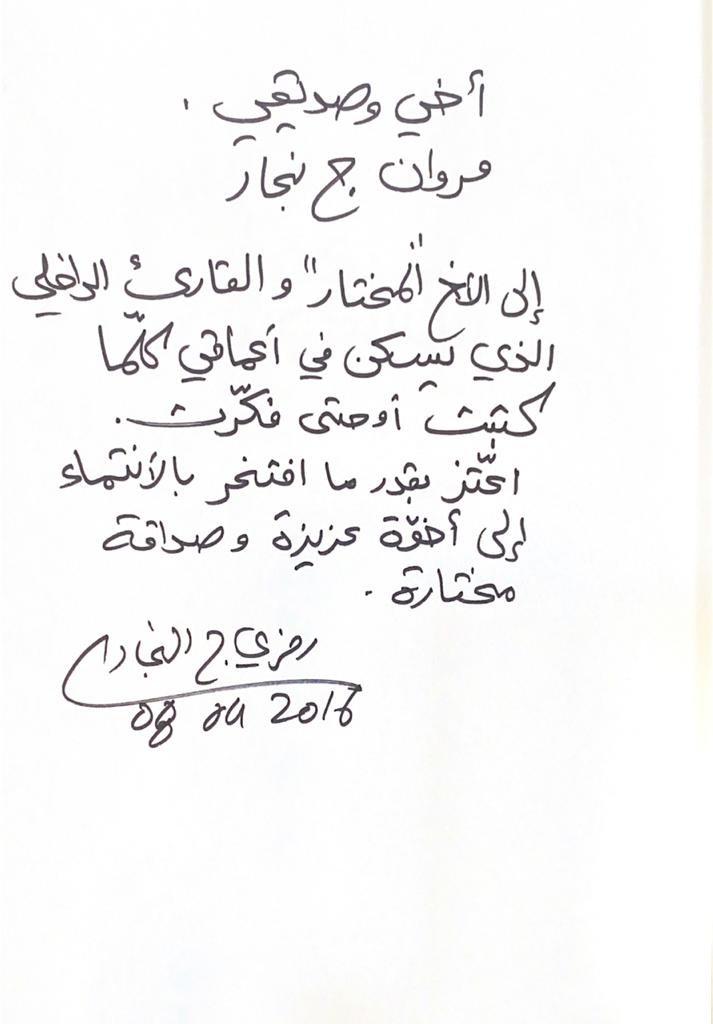 أخي وصديقي .
مروان ج نجار
إلى الأخ "المختار" والقارئ الداخلي
الذي يسكن في أعماقي كلّما
كتبت أو حتى فكّرت .
اعتّز بقدر ما افتخر بالأنتماء
إلى أخوّة عزيزة وصداقة
مختارة .
رمزي ج النجار
08 04 2016